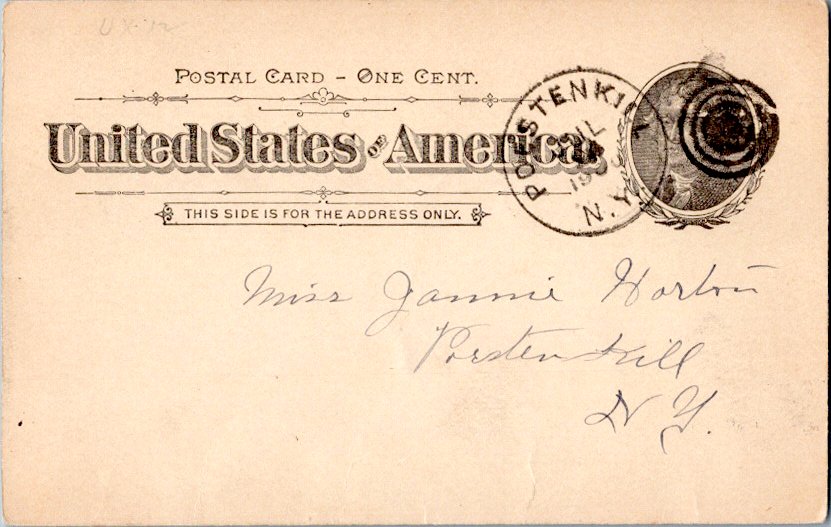 UX12
POSTAL CARD - ONE CENT.
United States OF America
THIS SIDE IS FOR THE ADDRESS ONLY.
POESTENKILL
N.Y.
Miss Jannie Horton
Poesten Kill
N Y.